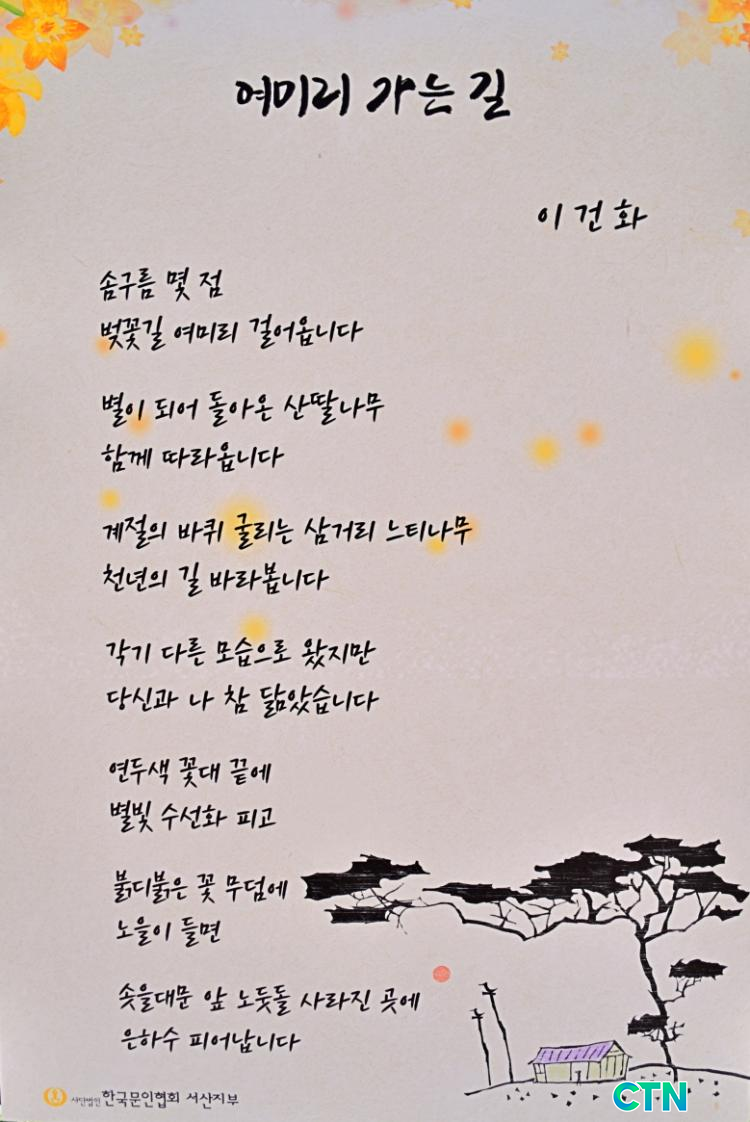 여미리 가는 길
이건화
솜구름 몇 점
벚꽃길 여미리 걸어옵니다
별이 되어 돌아온 산딸나무
함께 따라옵니다
계절의 바퀴 굴리는 삼거리 느티나무
천년의 길 바라봅니다
각기 다른 모습으로 왔지만
당신과 나 참 닮았습니다
연두색 꽃대 끝에
별빛 수선화 피고
붉디붉은 꽃 무덤에
노을이 들면
솟을대문 앞 노둣돌 사라진 곳에
은하수 피어납니다
사단법인 한국문인협회 서산지부
CTN